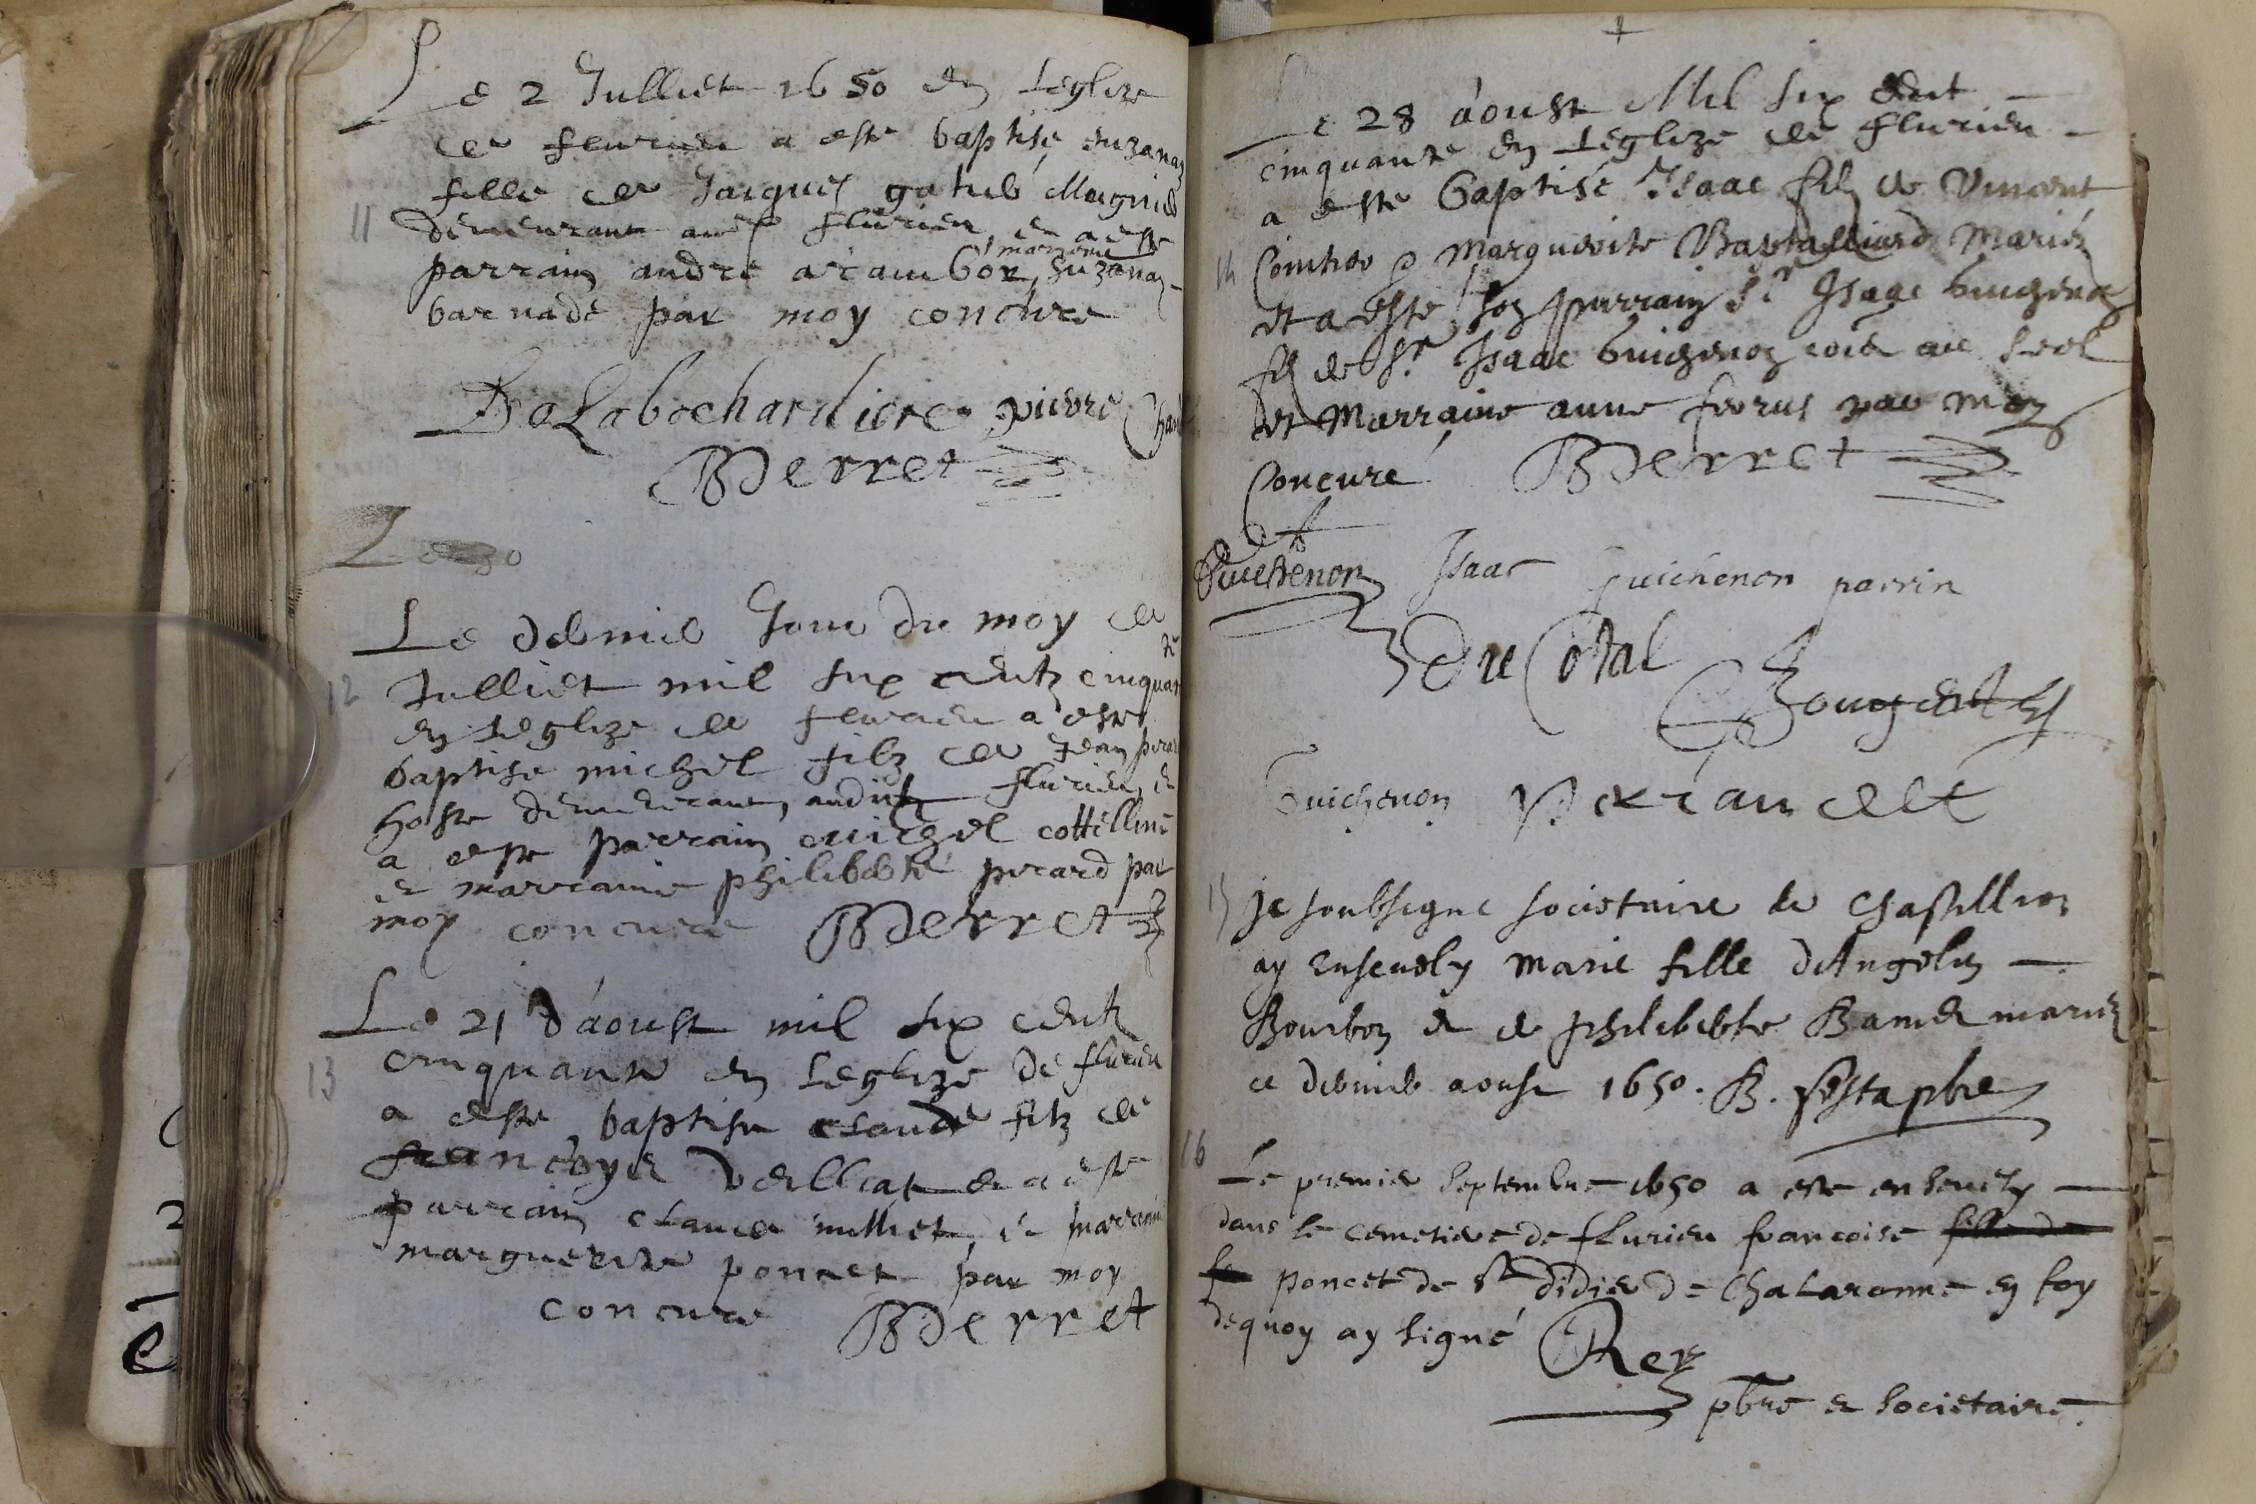 Le 2 Julliet 1650 en Leglize
de fleurieu a este baptisé suzanay
fille de Jacques gatieb Magnieb
11
demeurant aud flurieu, et a este
marraine
parrain andre arcambor, suzanay
barnade par moy concure
De Labochardiere pierre Chan
BDerret
Le 30
Le dernier Jour du moy de
12
Julliet mil six centz cinquante
en Leglize de fleurieu a este
baptise michel filz de Jean
hoste demeurant audict flurieu, et
a este parrain michel cottellin
et marraine philiberte perard par
moy concure BDerret
Le 21 d'aoust mil six centz
13
cinquante en Leglize de flurieu
a este baptise claude filz de
francoys veilliat et a este
parrain claude milliet, et marraine
marguerite poncet par moy
concure BDerret
Le 28 aoust Mil six cent
cinquante en Leglize de flurieu
a este baptisé Isaac filz de Vincent
14
Cointier et Marguerite Bastalliard Mariés
et a este son parrain Sr Isaac Guichenon
filz de Sr Isaac Guichenon
et Marraine anne par moy
Concuré BDerret
Guichenon Isaac Guichenon parrin
Du Cotal
Guichenon
15
je soubsigne societaire de Chastillion
ay ensevely marie fille d'Angelin
Bourbon et de philiberte Bandet mariez
ce dernier aoust 1650. B. Testa pbre
16
Le premier Septembre 1650 a este ensevely
dans le cemetiere de flurieu francoise fille de
feu poncet de St didier de Chalaronne en foy
dequoy ay signé Rey
pbre et societaire.